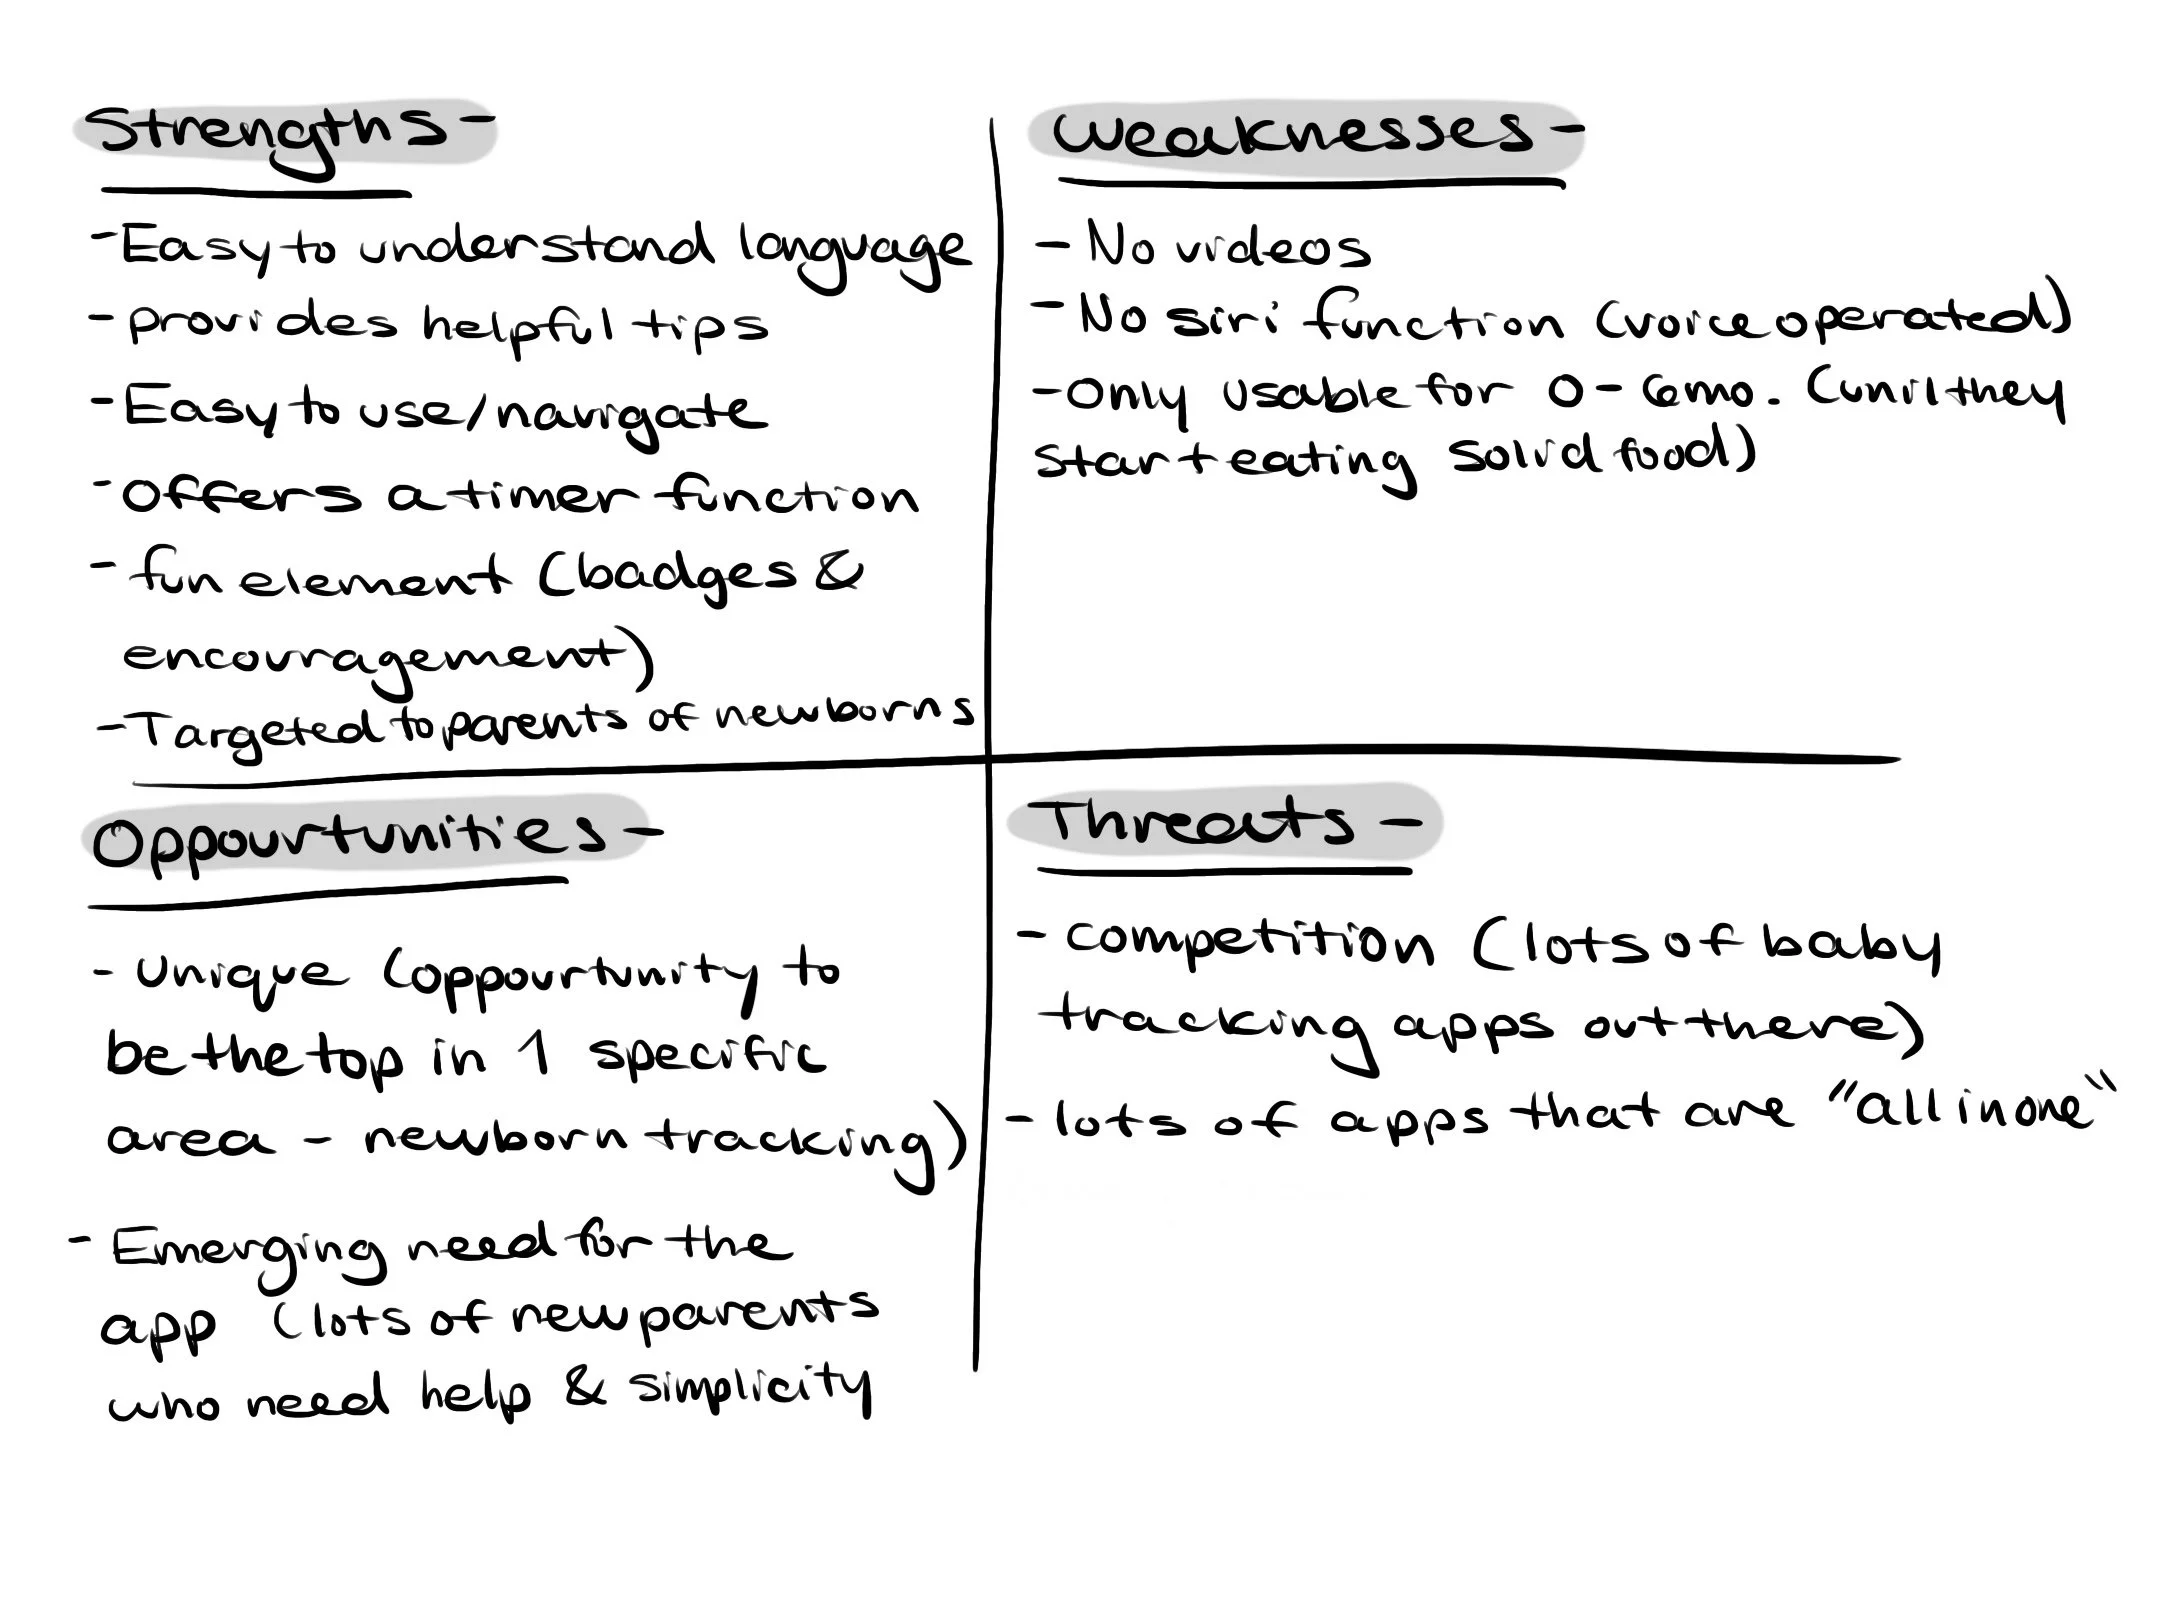 Strengths-
-Easy to understand language
-provides helpful tips
-Easy to use/navigate
-Offers a timer function
-fun element (badges &
encouragement)
-Targeted to parents of newborns
Weaknesses-
- No videos
- No siri function (voice operated)
-Only usable for 0-6mo. (unril they
start eating solid food)
Oppourtunities-
- Unique (oppourtunity to
be the top in 1 specific
area - newborn tracking)
- Emerging need for the
app (lots of new parents
who need help & simplicity
Threats-
- competition (lots of baby
tracking apps out there)
- lots of apps that are "all in one"